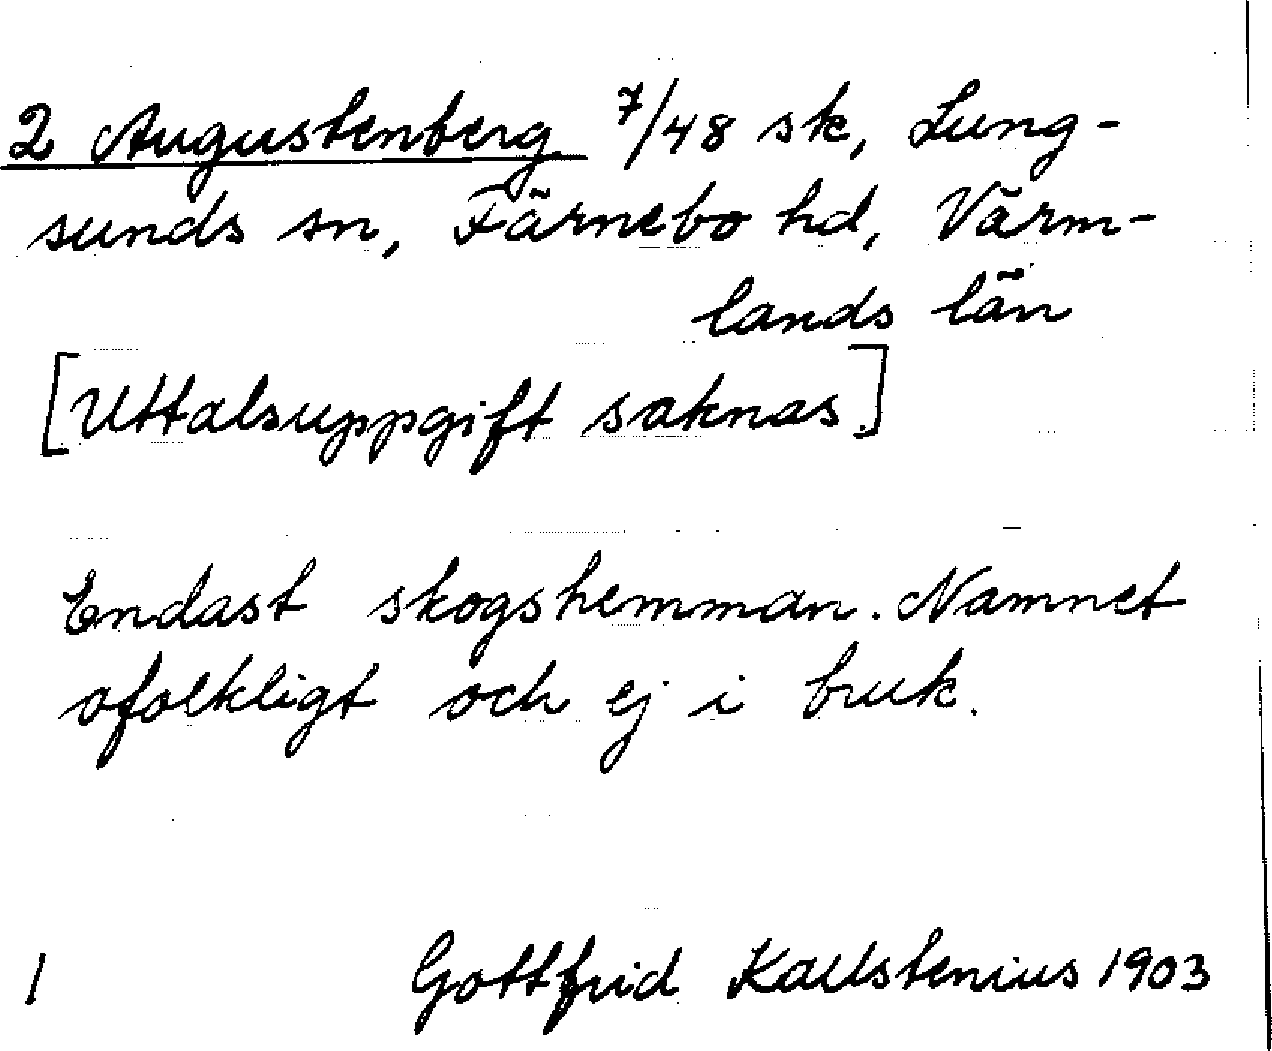 2 Augustenberg 7/48 sk, Lung-
sunds sn, Färnebo hd, Värm-
lands län
[Uttalsuppgift saknas.]
Endast skogshemman. Namnet
ofolkligt och ej i bruk.
1 Gottfrid Kallstenius 1903